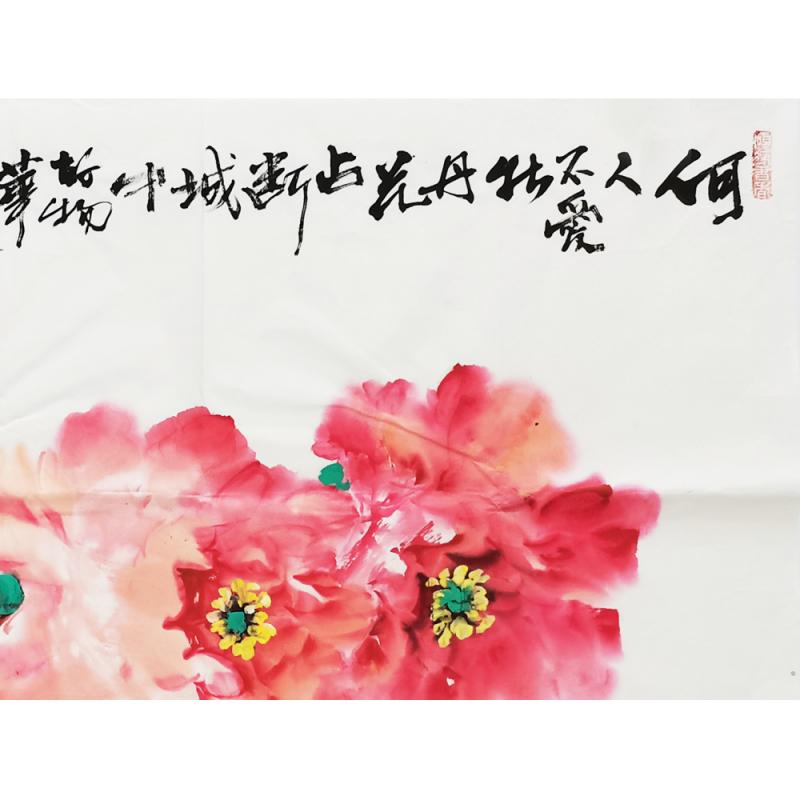 何人不愛牡丹花占断城中好物華